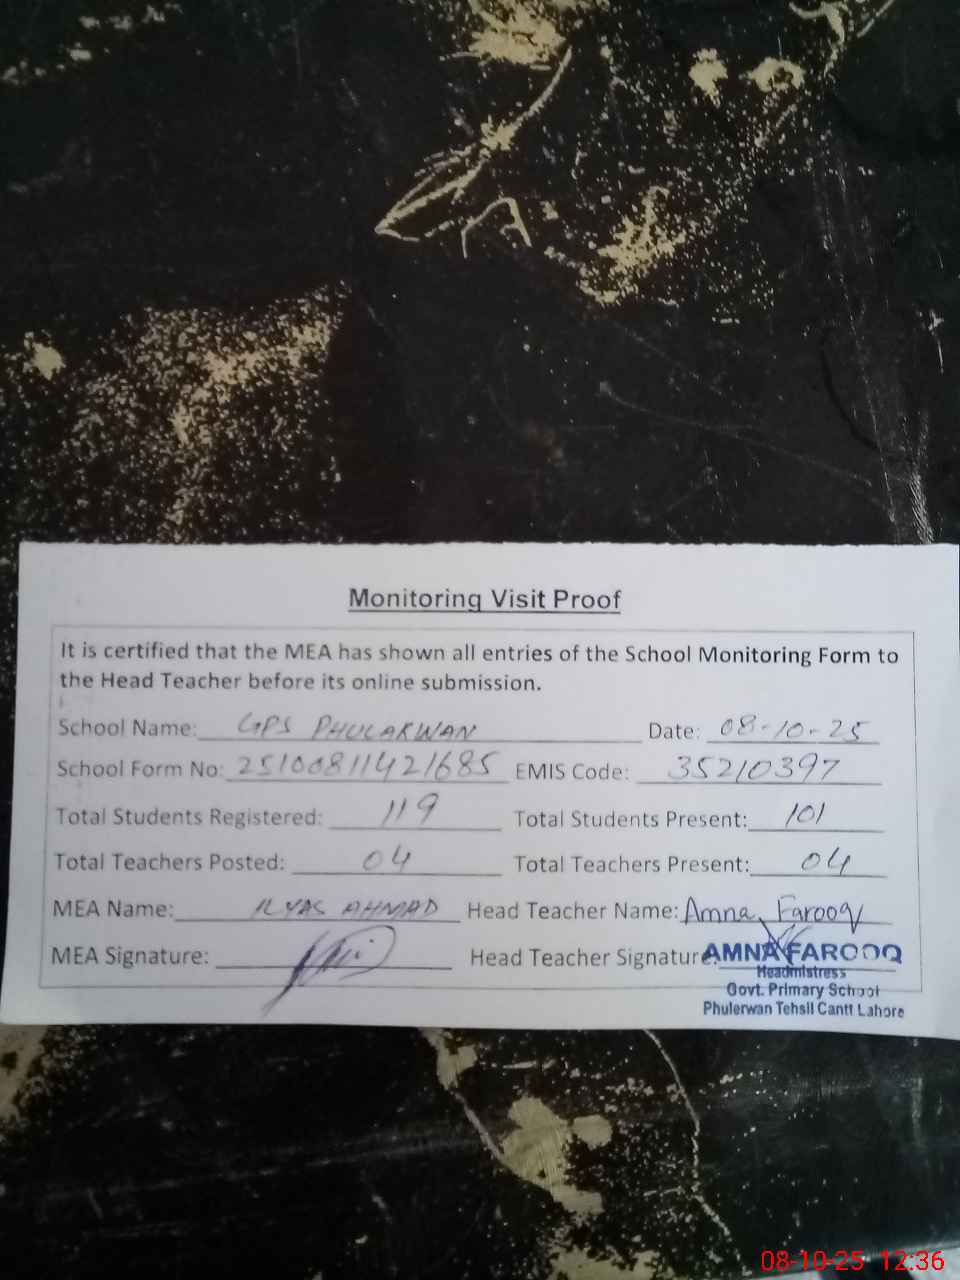 Monitoring Visit Proof
It is certified that the MEA has shown all entries of the School Monitoring Form to
the Head Teacher before its online submission.
School Name: GPS PHULARWAN Date: 08-10-25
School Form No: 25100811421685 EMIS Code: 35210397
Total Students Registered: 119 Total Students Present: 101
Total Teachers Posted: 04 Total Teachers Present: 04
MEA Name: ILYAS AHMAD Head Teacher Name: Amna Farooq
MEA Signature: Head Teacher Signature:
AMNA FAROOQ
Headmistress
Govt. Primary School
Phulerwan Tehsil Cantt Lahore
08-10-25 12:36